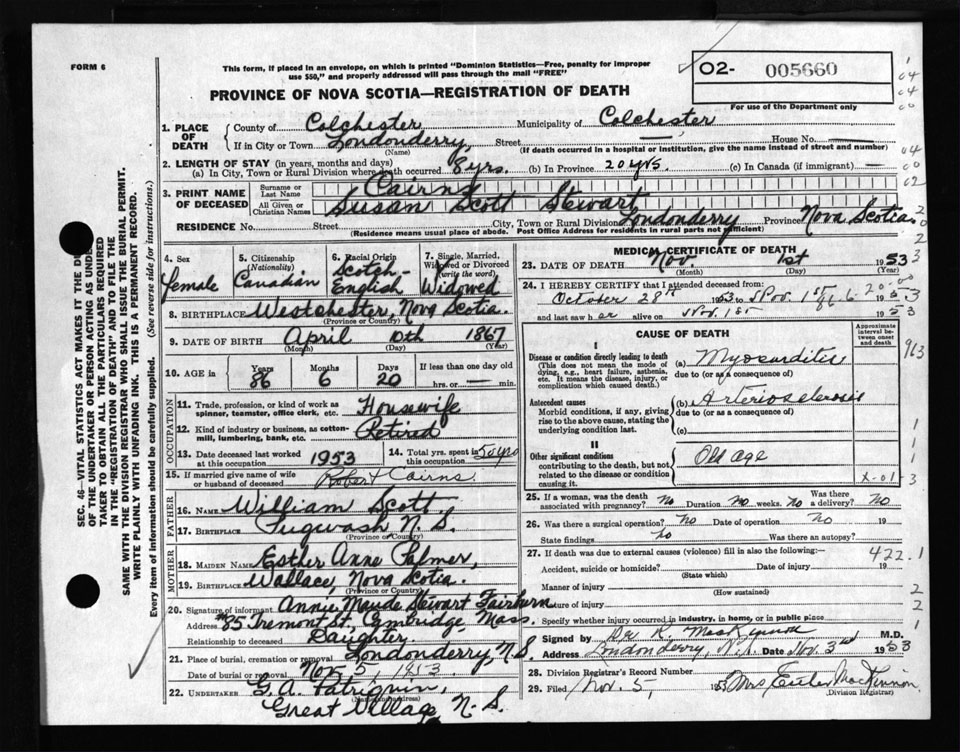 FORM 6
This form, if placed in an envelope, on which is printed "Dominion Statistics—Free, penalty for improper
use $50," and properly addressed will pass through the mail "FREE"
O2- 005660
For use of the Department only
PROVINCE OF NOVA SCOTIA—REGISTRATION OF DEATH
1. PLACE OF DEATH
County of Colchester Municipality of Colchester
If in City or Town Londonderry, Street — House No. —
(Name) (If death occurred in a hospital or institution, give the name instead of street and number)
2. LENGTH OF STAY (in years, months and days)
(a) In City, Town or Rural Division where death occurred 8 yrs. (b) In Province 20 yrs. (c) In Canada (if immigrant) —
3. PRINT NAME OF DECEASED
Surname or Last Name Cairns
All Given or Christian Names Susan Scott Stewart
RESIDENCE No. Street City, Town or Rural Division Londonderry Province Nova Scotia
(Residence means usual place of abode. Post Office Address for residents in rural parts not sufficient)
4. Sex Female
5. Citizenship (Nationality) Canadian
6. Racial Origin Scotch-English
7. Single, Married, Widowed or Divorced (write the word) Widowed
8. BIRTHPLACE Westchester, Nova Scotia.
(Province or Country)
9. DATE OF BIRTH April 10th 1867
(Month) (Day) (Year)
10. AGE in Years 86 Months 6 Days 20 If less than one day old
hrs. or — min.
OCCUPATION
11. Trade, profession, or kind of work as spinner, teamster, office clerk, etc. Housewife
12. Kind of industry or business, as cotton-mill, lumbering, bank, etc. Retired
13. Date deceased last worked at this occupation 1953
14. Total yrs. spent in this occupation 50 yrs
15. If married give name of wife or husband of deceased Robert Cairns
FATHER
16. NAME William Scott
17. BIRTHPLACE Pugwash N.S.
(Province or Country)
MOTHER
18. MAIDEN NAME Esther Anne Palmer,
19. BIRTHPLACE Wallace, Nova Scotia.
(Province or Country)
20. Signature of informant Annie Maude Stewart Fairburn
Address #85 Tremont St. Cambridge, Mass.
Relationship to deceased Daughter.
21. Place of burial, cremation or removal Londonderry, N.S.
Date of burial or removal Nov. 5 1953
22. UNDERTAKER G. A. Patriquin,
Great Village N.S.
MEDICAL CERTIFICATE OF DEATH
23. DATE OF DEATH Nov. 1st 1953
(Month) (Day) (Year)
24. I HEREBY CERTIFY that I attended deceased from:
October 28th 1953 to Nov. 1st 1953
and last saw her alive on Nov. 1st 1953
CAUSE OF DEATH
Approximate interval between onset and death
I
Disease or condition directly leading to death
(This does not mean the mode of dying, e.g., heart failure, asthenia, etc. It means the disease, injury, or complication which caused death.)
(a) Myocarditis
due to (or as a consequence of)
Antecedent causes
Morbid conditions, if any, giving rise to the above cause, stating the underlying condition last.
(b) Arteriosclerosis
due to (or as a consequence of)
(c)
II
Other significant conditions
contributing to the death, but not related to the disease or condition causing it.
Old age
X-01
25. If a woman, was the death associated with pregnancy? No Duration no weeks. no Was there a delivery? no
26. Was there a surgical operation? no Date of operation no 19
State findings no Was there an autopsy?
27. If death was due to external causes (violence) fill in also the following:— 422.1
Accident, suicide or homicide? Date of injury 19
(State which)
Manner of injury
(How sustained)
Nature of injury
Specify whether injury occurred in industry, in home, or in public place
Signed by Dr. R. MacKinnon M.D.
Address Londonderry, N.S. Date Nov. 3rd 1953
28. Division Registrar's Record Number
29. Filed Nov. 5, 1953 Mrs MacKinnon
(Division Registrar)
SEC. 46—VITAL STATISTICS ACT MAKES IT THE
OF THE UNDERTAKER OR PERSON ACTING AS UNDER
TAKER TO OBTAIN ALL THE PARTICULARS REQUIRED
IN THE "REGISTRATION OF DEATH" AND TO FILE THE
SAME WITH THE DIVISION REGISTRAR WHO SHALL ISSUE THE BURIAL PERMIT.
WRITE PLAINLY WITH UNFADING INK. THIS IS A PERMANENT RECORD.
Every item of information should be carefully supplied. (See reverse side for instructions.)